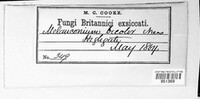 M. C. COOKE.
Fungi Britannici exsiccati.
Melanconium bicolor Nees
Highgate
May 1864.
No.